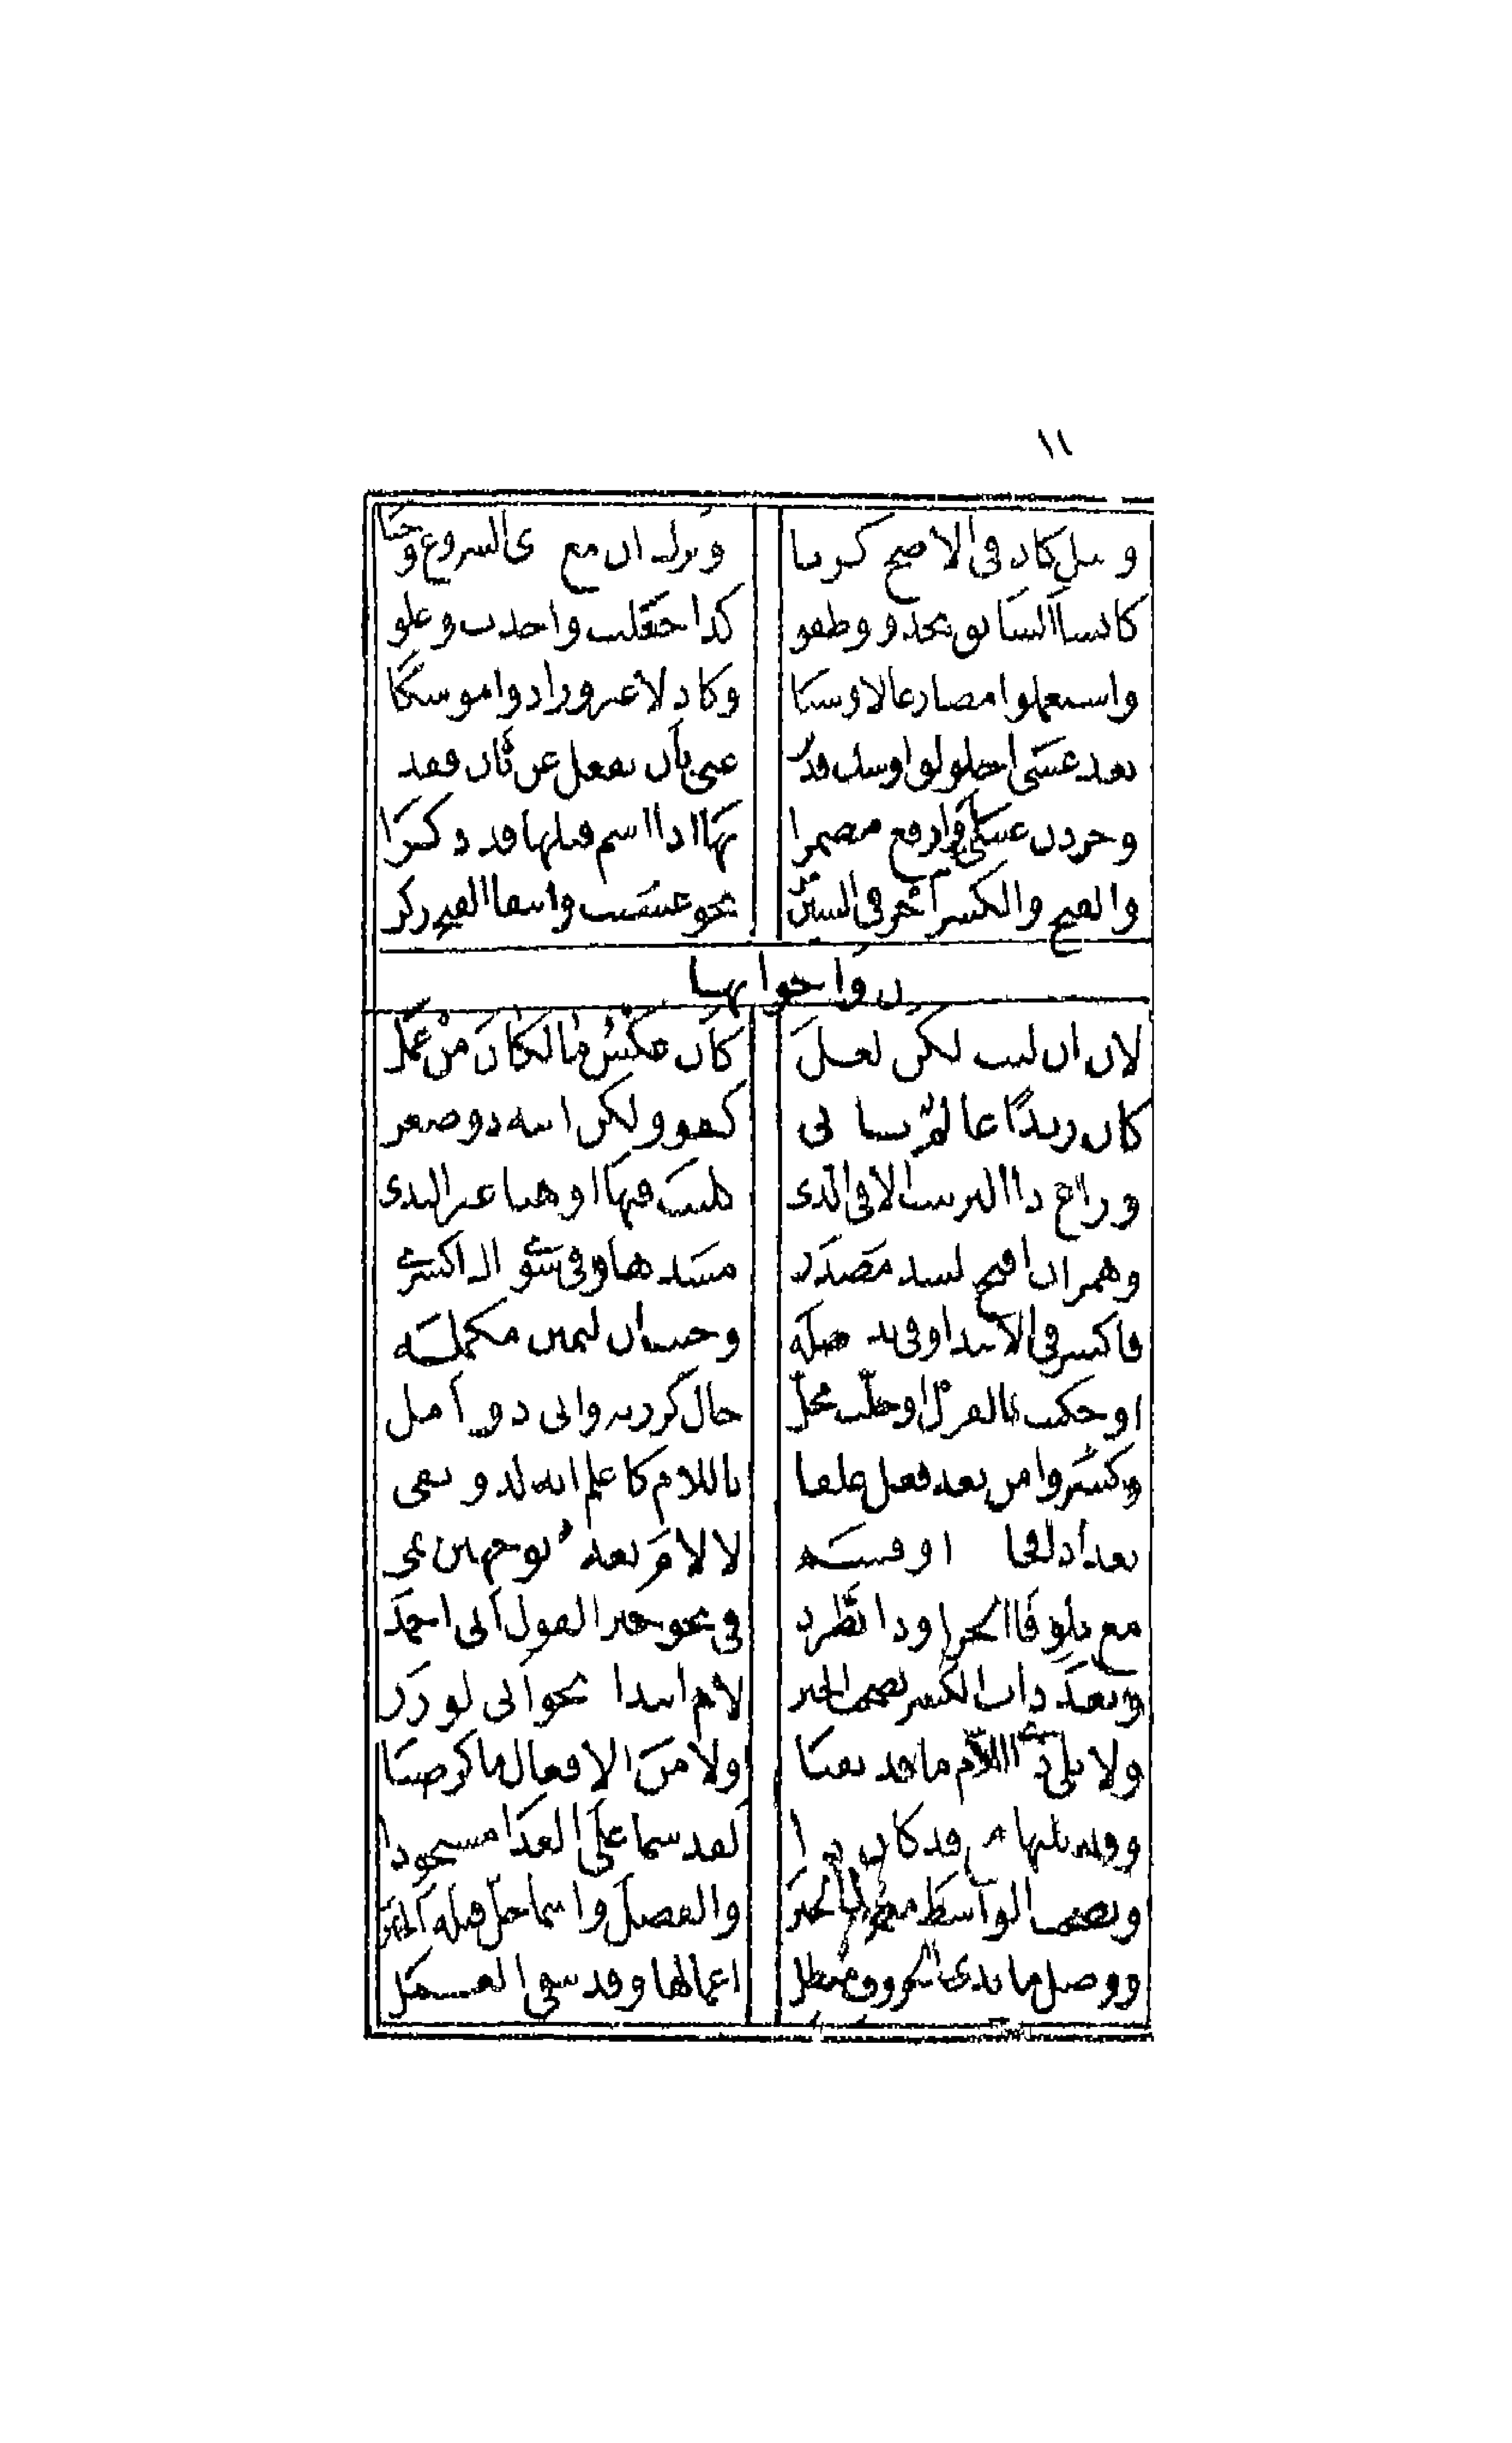 ١١
ومثل كاد في الاصح كربا وترك ان مع ذى الشروع وجبا
كانشا السائق يحدو وطفق كذا جعلت واخذت وعلق
واستعملوا مضارعا لاوشكا وكاد لا غير وزادوا موشكا
بعد عسى اخلولق اوشك قد يرد غنى بان يفعل عن ثان فقد
وجردن عسى او ارفع مضمرا بها اذا اسم قبلها قد ذكرا
والفتح والكسر اجز في السين من نحو عسيت وانتقا الفتح زكن
ن واخواتها
لان ان ليت لكن لعل كان عكس ما لكان من عمل
كان زيدا عالم باني كفو ولكن ابنه ذو ضغن
وراع ذا الترتيب الا في الذى كليت فيها او هنا غير البذى
وهمز ان افتح لسد مصدر مسدها وفي سوى ذاك اكسر
فاكسر في الابتدا وفي بدء صله وحيث ان ليمين مكمله
او حكيت بالقول او حلت محل حال كزرته واني ذو امل
وكسروا من بعد فعل علقا باللام كاعلم انه لذو تقى
بعد اذا فجا او قسم لا لام بعده بوجهين نمى
مع تلو فا الجزا وذا يطرد في نحو خير القول اني احمد
وبعد ذات الكسر تصحب الخبر لام ابتدا نحو اني لوزر
ولا يلى ذى اللام ما قد نفيا ولا من الافعال ما كرضيا
وقد يليها مع قد كان ذا لقد سما على العدا مستحوذا
وتصحب الواسط معمول الخبر والفصل واسما حل قبله الخبر
ووصل ما بذى الحروف مبطل اعمالها وقد يبقى العمل